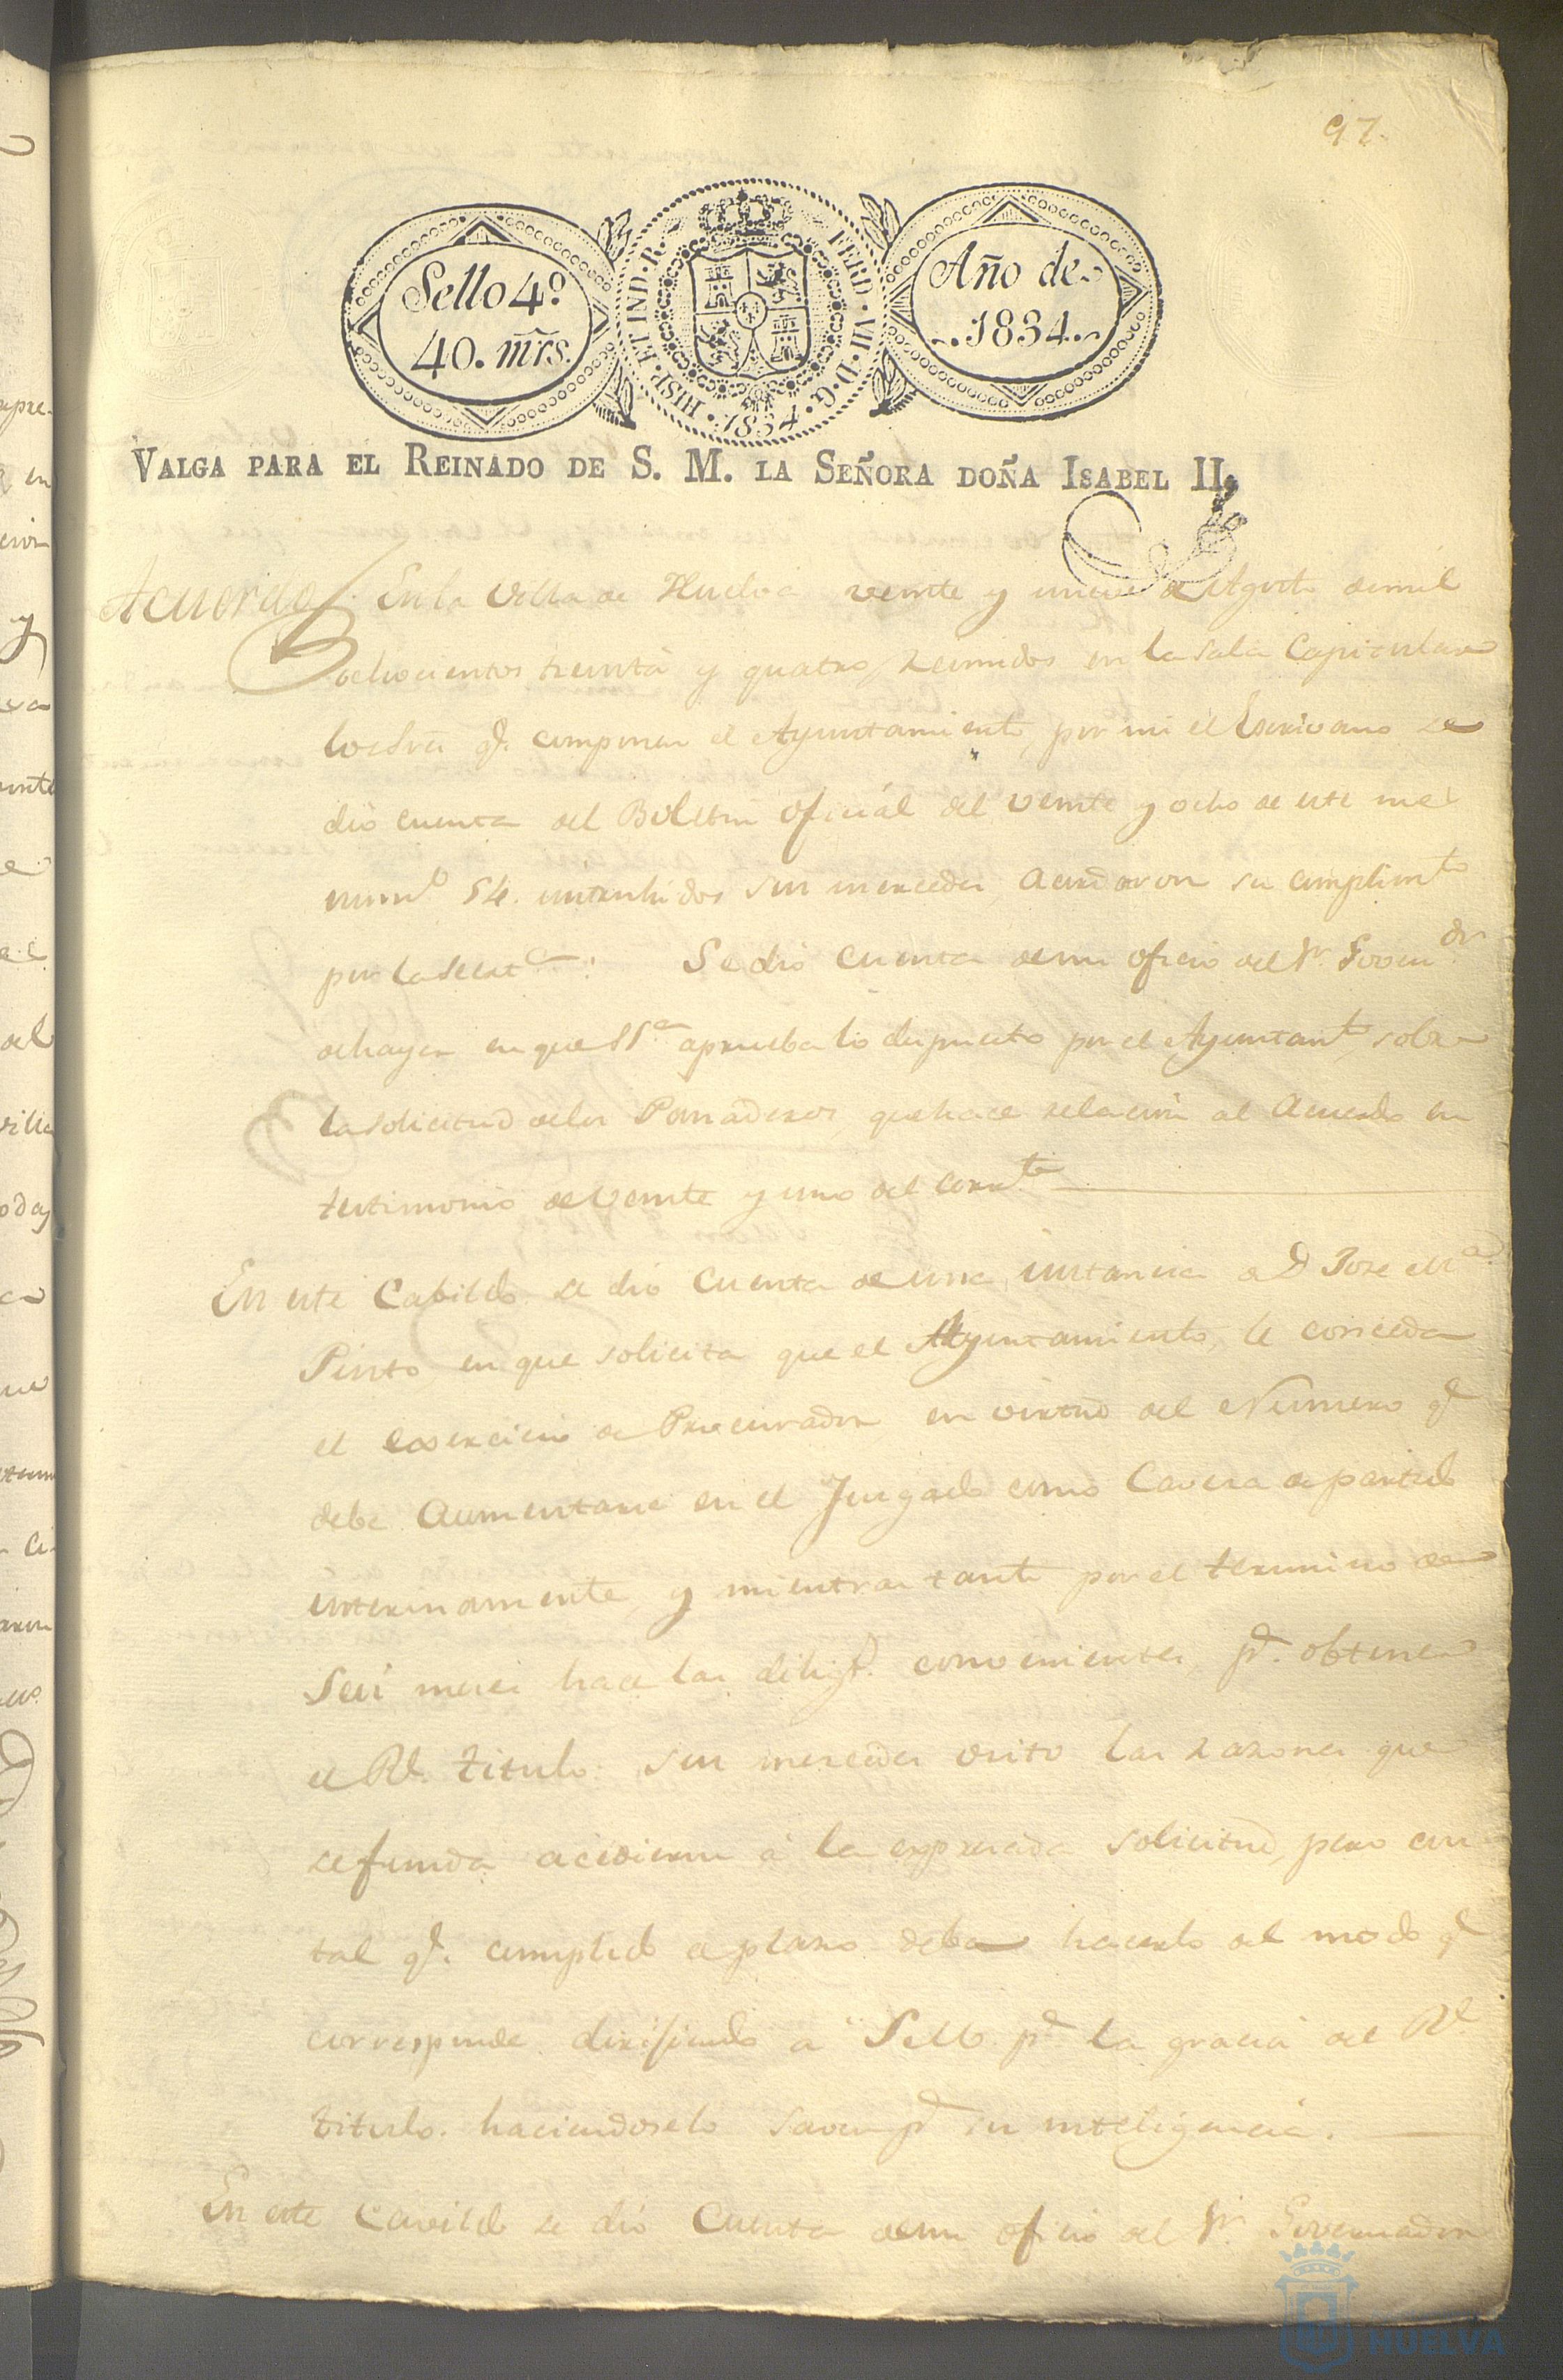 97.
Sello 4º
40. mrs.
HISP. ET IND. R.
FERD. VII. D. G.
1834
Año de
1834.
VALGA PARA EL REINADO DE S. M. LA SEÑORA DOÑA ISABEL II,
Acuerdo En la Villa de Huelva veinte y nueve de Agosto de mil
ochocientos treinta y quatro, reunidos en la Sala Capitular
los Sres q.e componen el Ayuntamiento, por mi el Escrivano se
dió cuenta del Boletin oficial del veinte y ocho de este mes
num.º 54. sus mercedes, acordaron su cumplim.to
por la Se dió cuenta de un oficio del Sr. Govern.or
de hayer en que SSª aprueba lo dispuesto por el Ayuntam.to sobre
la solicitud de los Panaderos, que hace relacion al Acuerdo en
testimonio de veinte y uno del corr.te
En este Cabildo se dió cuenta de una instancia de D Jose M.a
Pinto en que solicita que el Ayuntamiento, le conceda
el exercicio de Procurador en virtud del Numero q.e
debe aumentarse en el Juzgado como Cavesa de partido
interinamente, y mientras tanto por el termino de
seis meses hace las dilig.s convenientes p.a obtener
el Rl. titulo: sus mercedes visto las razones que
se funda accedieron á la expresada solicitud, pero con
tal q.e cumplido el plazo deba hacerlo del modo q.e
corresponde dirijiendo á S.M. p.a la gracia del Rl
titulo. haciendoselo saver p.a su inteligencia.
En este Cavildo se dió Cuenta de un oficio del Sr Governador
HUELVA